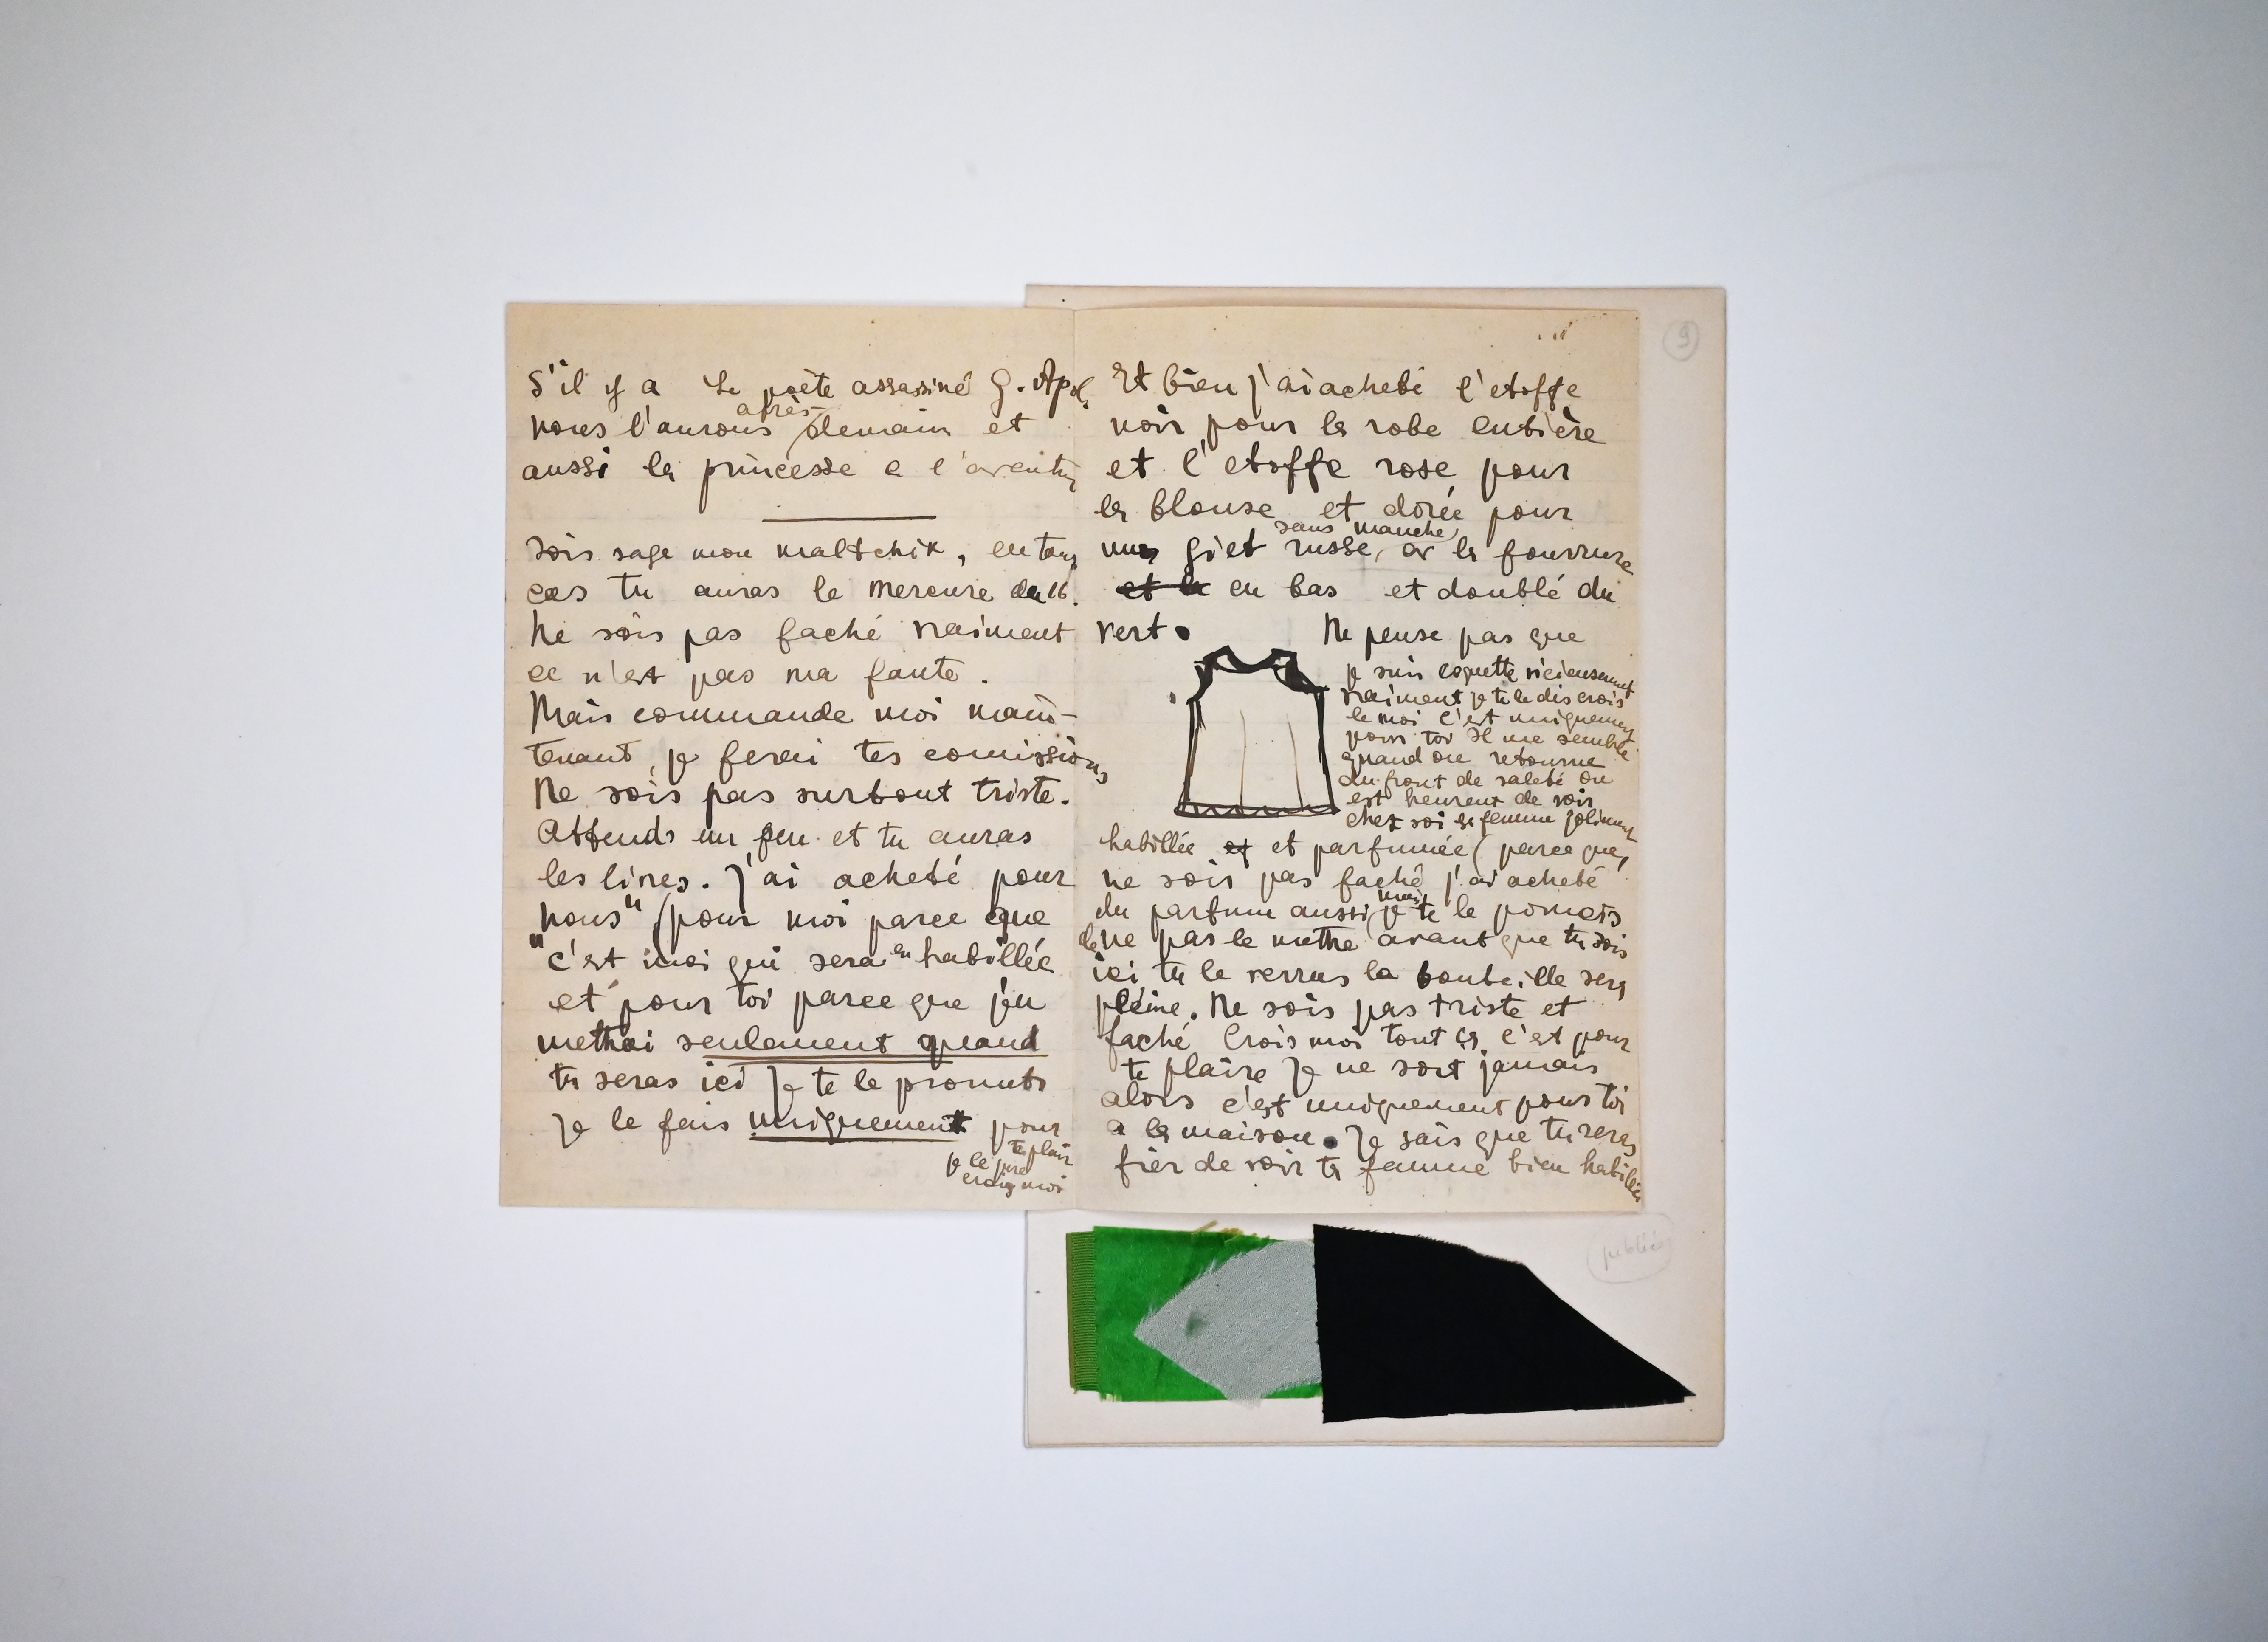 S'il y a Le poète assassiné G. Apol.
nous l'aurons après demain et
aussi la princesse e l'aventu
Sois sage mon maltchik, en tous
cas tu auras le Mercure du 16.
Ne sois pas faché vraiment
ce n'est pas ma faute.
Mais commande moi main-
tenant, je ferai tes comissions
Ne sois pas surtout triste.
Attends un peu et tu auras
les livres. J'ai acheté pour
"nous" (pour moi parce que
c'est moi qui sera en habillée
et pour toi parce que j'en
mettrai seulement quand
tu seras ici Je te le promets
Je le fais uniquement pour
te plair
je le jure
crois moi
9
Et bien j'ai acheté l'etoffe
noir pour la robe entière
et l'etoffe rose pour
la blouse et dorée pour
une gilet russe, sans manche, av la fourrure
et la en bas et doublé du
vert. Ne pense pas que
je suis coquette vicieusement
vraiment je te le dis crois
le moi c'est uniquement
pour toi Il me semble
quand on retourne
du front de saleté on
est heureux de voir
chez soi sa femme joliment
habillée et et parfumée (parce que,
ne sois pas faché j'ai acheté
du parfum aussi, mais je te le promets
de ne pas le mettre avant que tu sois
ici, tu le verras la bouteille sera
pleine. Ne sois pas triste et
faché Crois moi tout ça c'est pour
te plaire Je ne sort jamais
alors c'est uniquement pour toi
a la maison. Je sais que tu seras
fier de voir ta femme bien habillée
publié